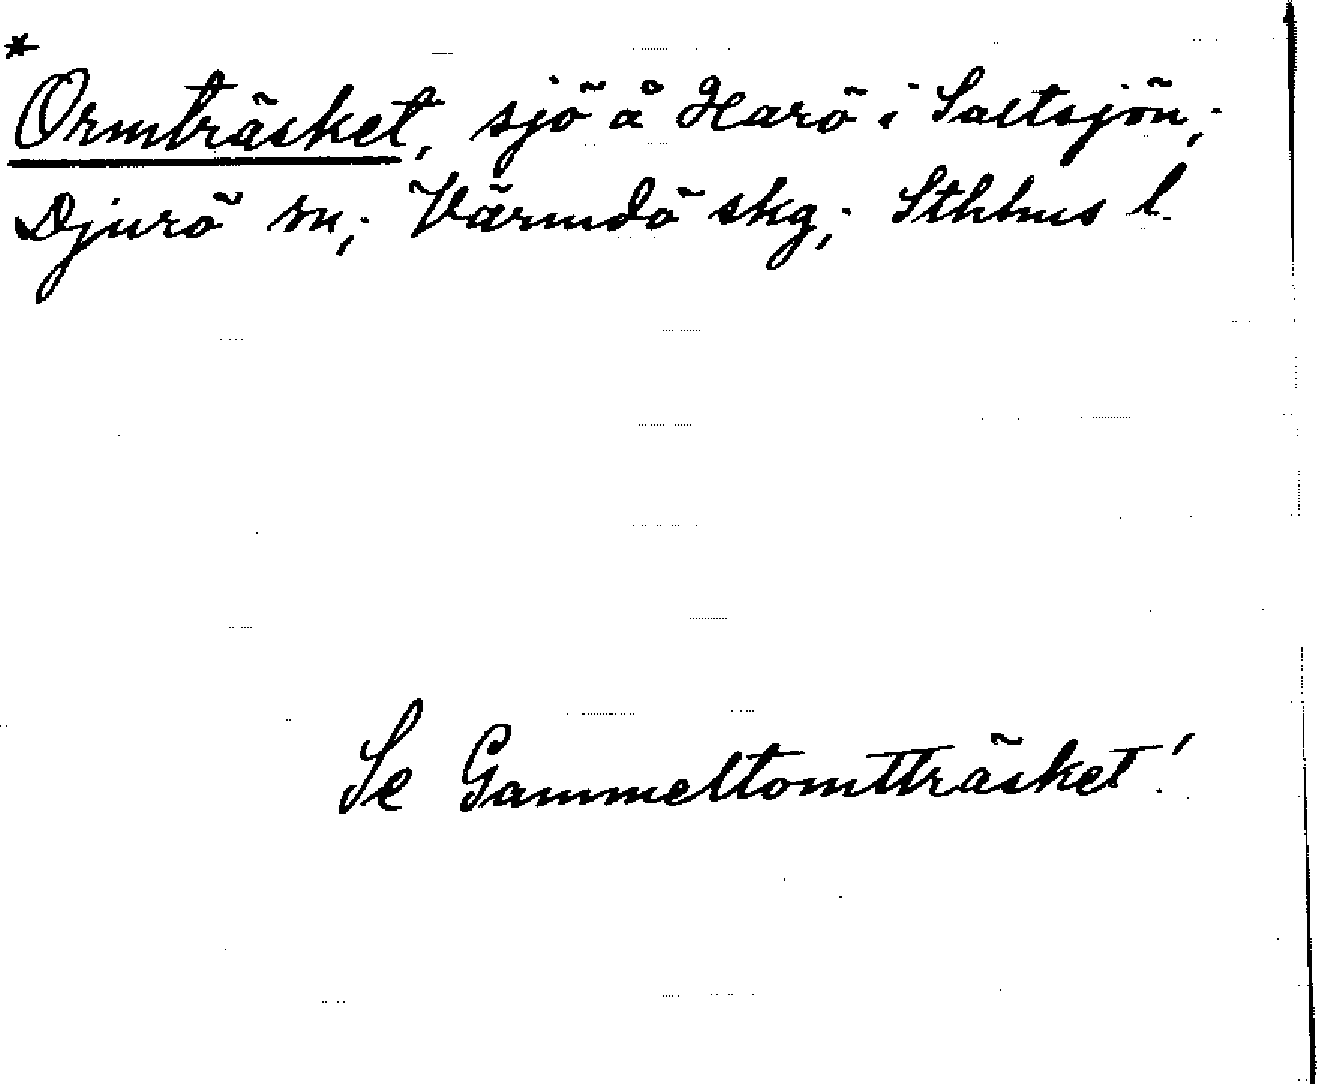 *
Ormträsket, sjö å Harö i Saltsjön;
Djurö sn; Värmdö skg; Sthlms l.
Se Gammeltomtträsket!